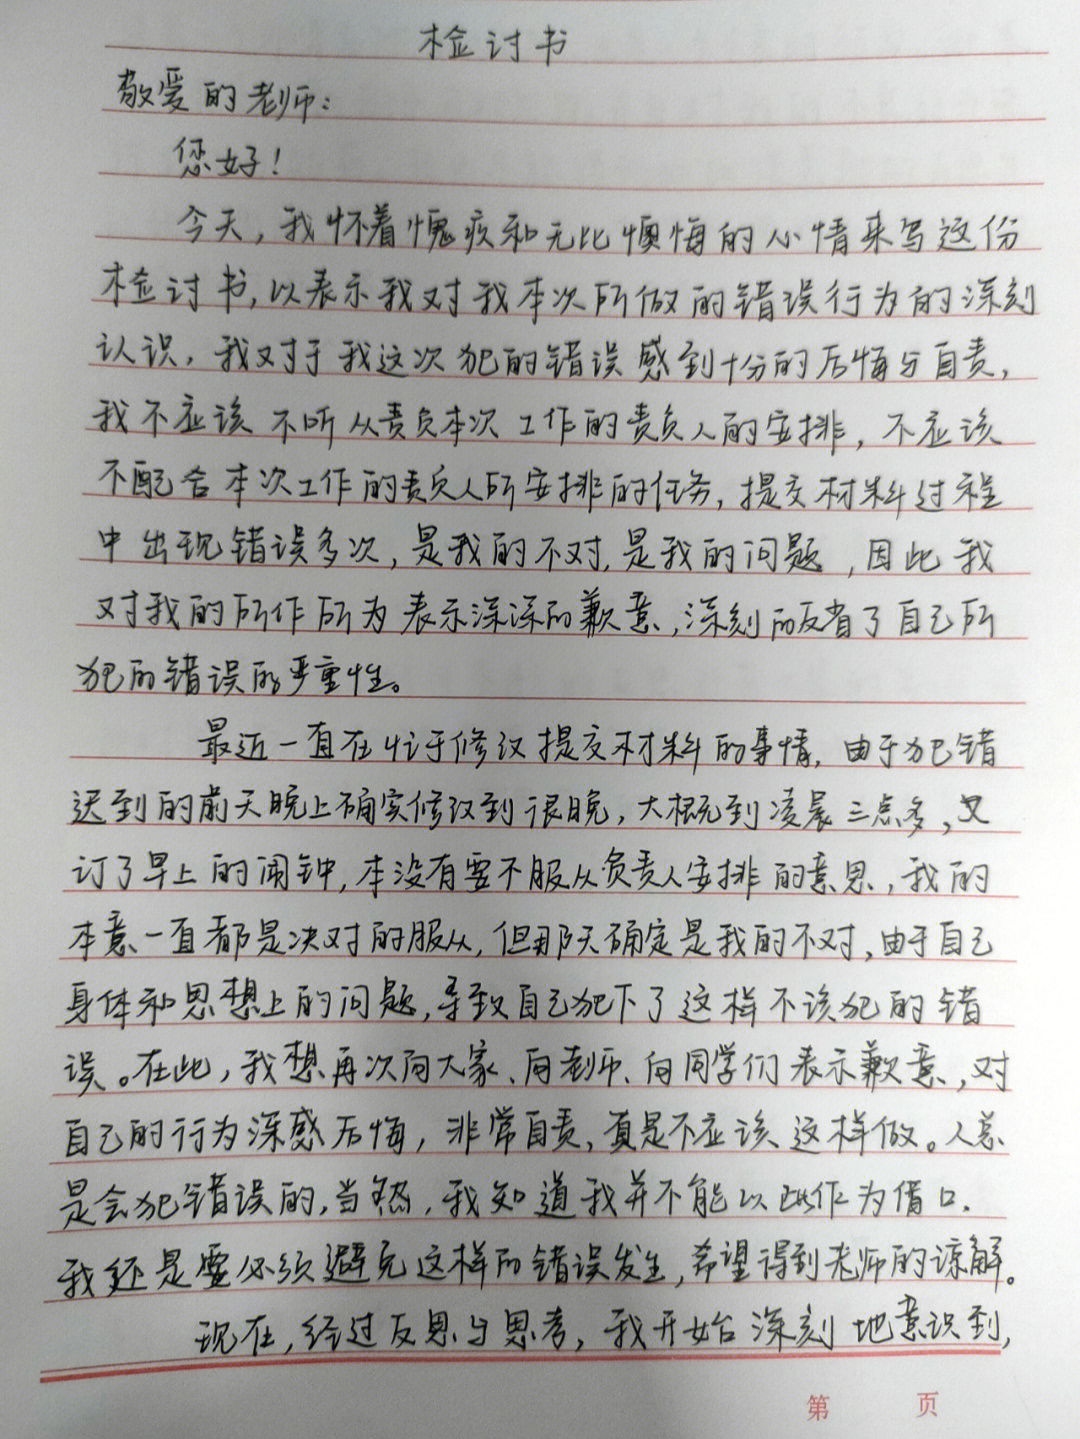 检讨书
敬爱的老师:
您好!
今天,我怀着愧疚和无比懊悔的心情来写这份
检讨书,以表示我对我本次所做的错误行为的深刻
认识,我对于我这次犯的错误感到十分的后悔与自责,
我不应该不听从责负本次工作的责负人的安排,不应该
不配合本次工作的责负人所安排的任务,提交材料过程
中出现错误多次,是我的不对,是我的问题,因此我
对我的所作所为表示深深的歉意,深刻的反省了自己所
犯的错误的严重性。
最近一直在忙于修改提交材料的事情,由于犯错
迟到的前天晚上确实修改到很晚,大概到凌晨三点多,又
订了早上的闹钟,本没有要不服从负责人安排的意思,我的
本意一直都是决对的服从,但那天确定是我的不对,由于自己
身体和思想上的问题,导致自己犯下了这样不该犯的错
误。在此,我想再次向大家、向老师、向同学们表示歉意,对
自己的行为深感后悔,非常自责,真是不应该这样做。人总
是会犯错误的,当然,我知道我并不能以此作为借口.
我还是要必须避免这样的错误发生,希望得到老师的谅解。
现在,经过反思与思考,我开始深刻地意识到,
第 页